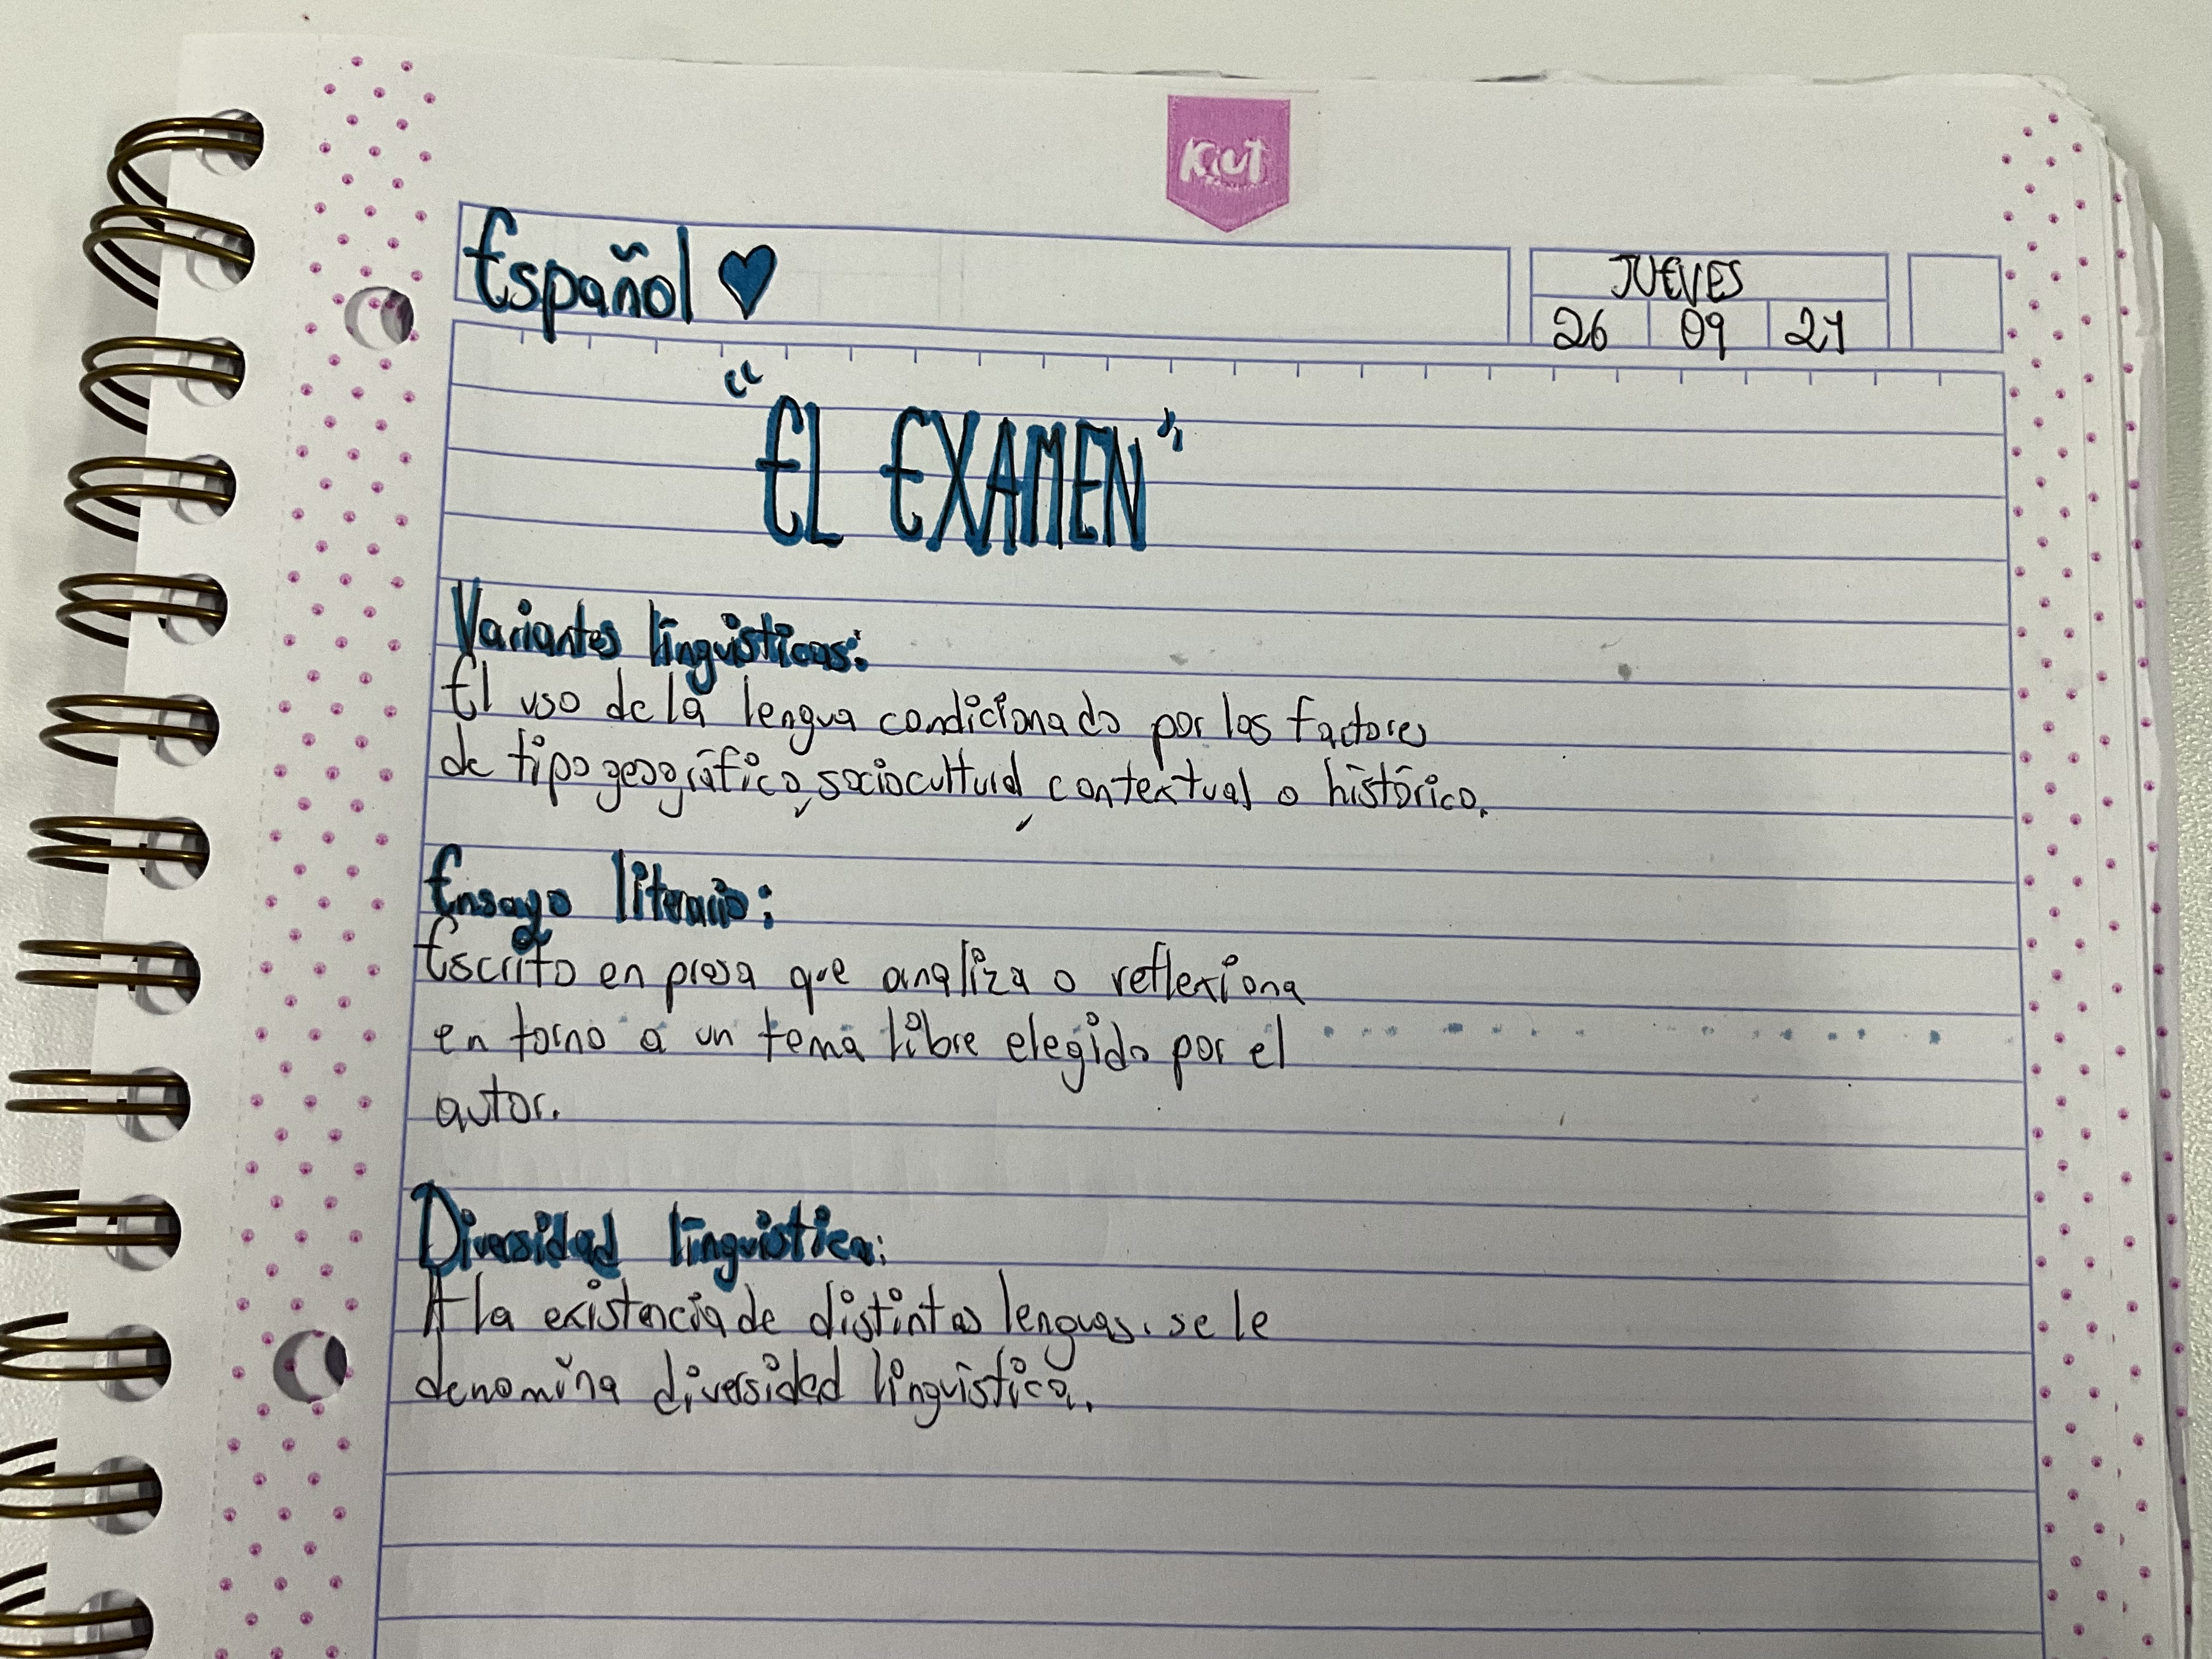 Kiut
Español
JUEVES
26 09 24
"EL EXAMEN"
Variantes lingüisticas:
El uso de la lengua condicionado por los factores
de tipo geográfico, sociocultural, contextual o histórico.
Ensayo literario:
Escrito en prosa que analiza o reflexiona
en torno a un tema libre elegido por el
autor.
Diversidad lingüistica:
A la existencia de distintas lenguas. se le
denomina diversidad lingüistica.